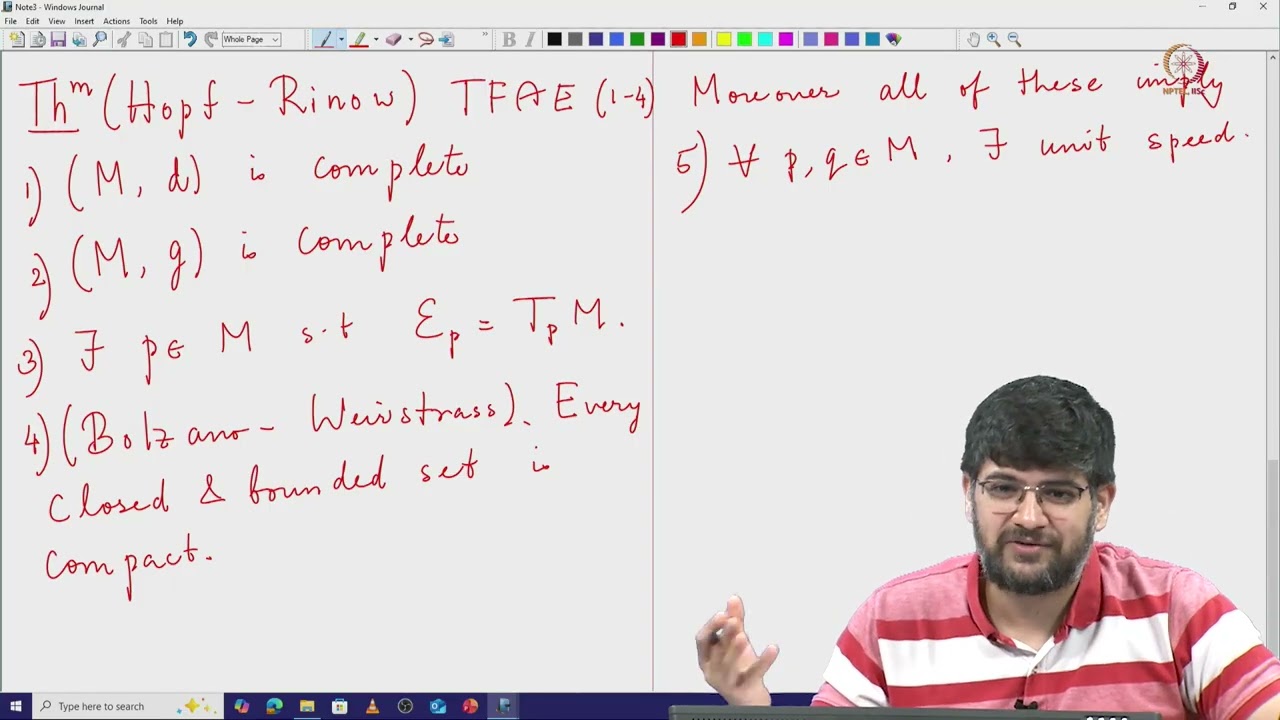 Note3 - Windows Journal
File Edit View Insert Actions Tools Help
Whole Page
Th^m (Hopf - Rinow) TFAE (1-4)
1) (M, d) is complete
2) (M, g) is complete
3) ∃ p ∈ M s.t ℰ_p = T_p M.
4) (Bolzano - Weirstrass). Every
closed & bounded set is
compact.
Moreover all of these imply
5) ∀ p, q ∈ M, ∃ unit speed.
NPTEL, IISc
Type here to search